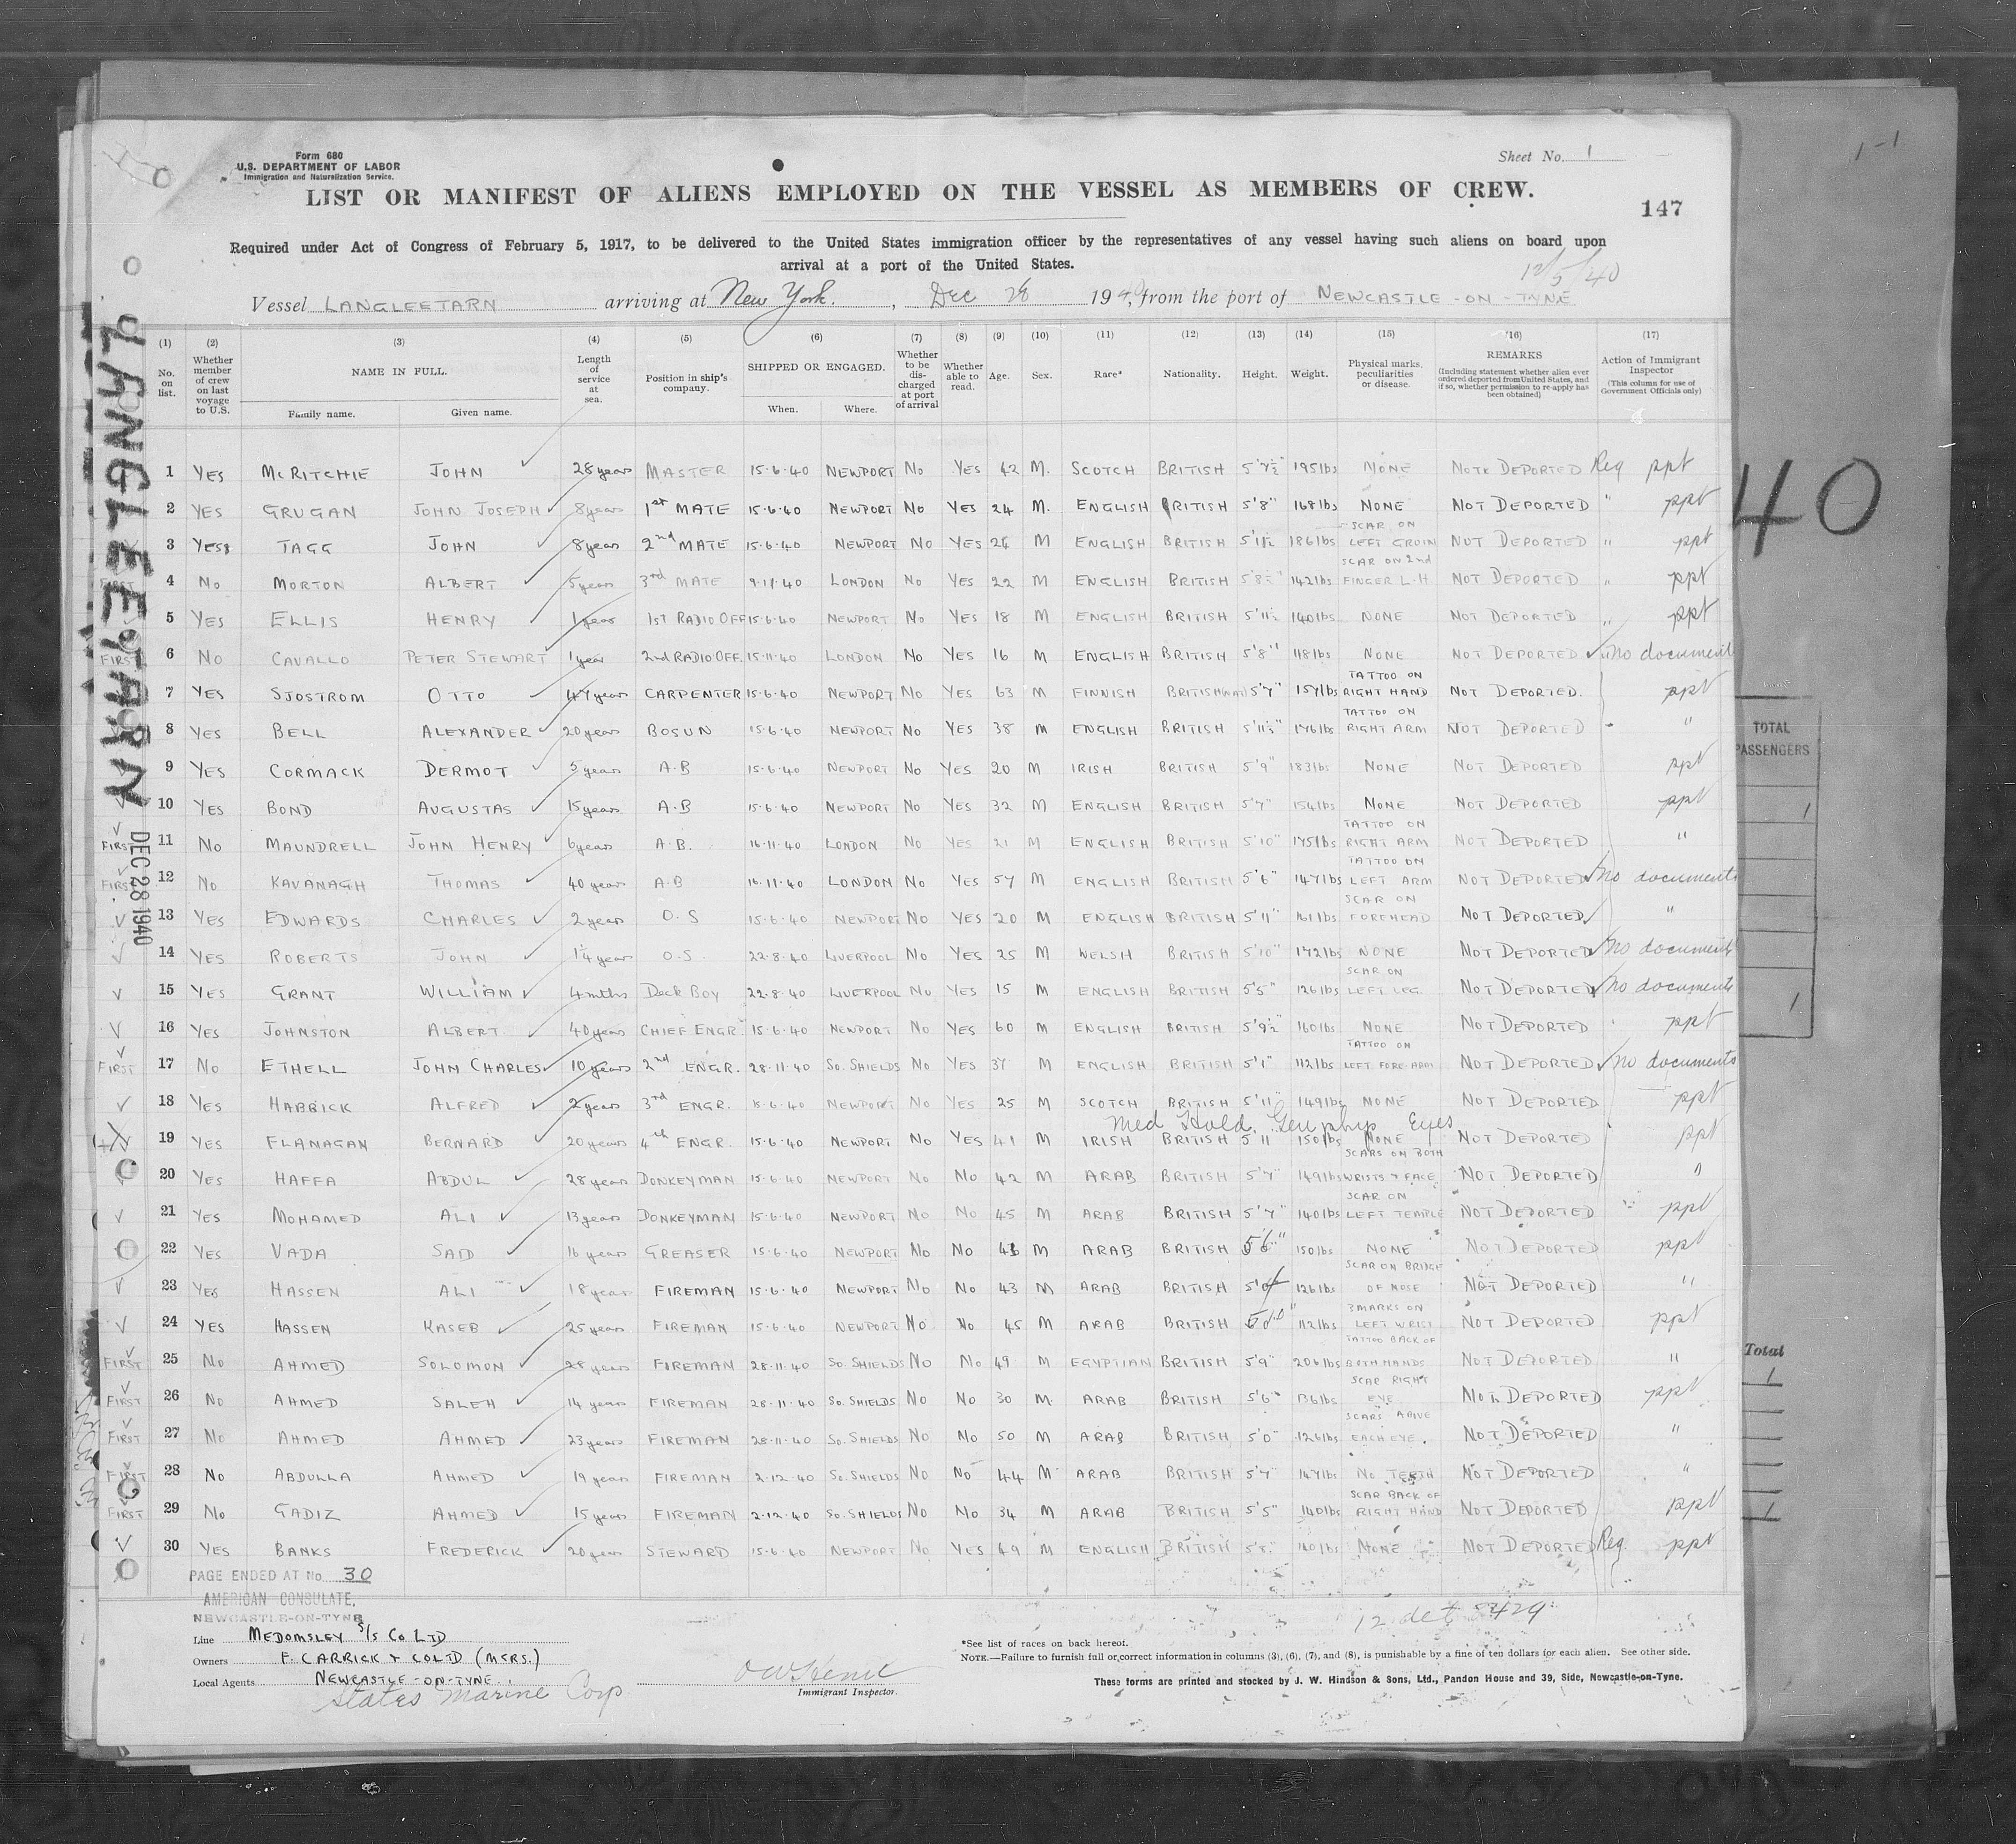 Form 680
U.S. DEPARTMENT OF LABOR
Immigration and Naturalization Service.
Sheet No. 1
1-1
LIST OR MANIFEST OF ALIENS EMPLOYED ON THE VESSEL AS MEMBERS OF CREW.
147
Required under Act of Congress of February 5, 1917, to be delivered to the United States immigration officer by the representatives of any vessel having such aliens on board upon
arrival at a port of the United States.
12/5/40
Vessel LANGLEETARN arriving at New York. , Dec 28 1940, from the port of NEWCASTLE-ON-TYNE
LANGLEETARN
DEC 28 1940
40
(1) (2) (3) (4) (5) (6) (7) (8) (9) (10) (11) (12) (13) (14) (15) (16) (17)
No. on list. Whether member of crew on last voyage to U.S. NAME IN FULL. Family name. Given name. Length of service at sea. Position in ship's company. SHIPPED OR ENGAGED. When. Where. Whether to be discharged at port of arrival Whether able to read. Age. Sex. Race* Nationality. Height. Weight. Physical marks, peculiarities or disease. REMARKS (Including statement whether alien ever ordered deported from United States, and if so, whether permission to re-apply has been obtained) Action of Immigrant Inspector (This column for use of Government Officials only)
1 YES McRITCHIE JOHN 28 years MASTER 15.6.40 NEWPORT No YES 42 M. SCOTCH BRITISH 5'7½ 195lbs NONE NOTE DEPORTED Reg ppt
2 YES GRUGAN JOHN JOSEPH 8 years 1st MATE 15.6.40 NEWPORT No YES 24 M. ENGLISH BRITISH 5'8" 168lbs NONE NOT DEPORTED " ppt
3 YES TAGG JOHN 8 years 2nd MATE 15.6.40 NEWPORT No YES 26 M ENGLISH BRITISH 186lbs SCAR ON LEFT GROIN NOT DEPORTED " ppt
4 FIRST No MORTON ALBERT 5 years 3rd MATE 9.11.40 LONDON No YES 22 M ENGLISH BRITISH 5'8½" 142lbs SCAR ON 2nd FINGER L.H NOT DEPORTED " ppt
5 YES ELLIS HENRY 1 year 1ST RADIO OFF 15.6.40 NEWPORT No YES 18 M ENGLISH BRITISH 5'11½ 140lbs NONE NOT DEPORTED " ppt
6 FIRST No CAVALLO PETER STEWART 1 year 2nd RADIO OFF. 15.11.40 LONDON No YES 16 M ENGLISH BRITISH 5'8" 118lbs NONE NOT DEPORTED " no document
7 YES SJOSTROM OTTO 47 years CARPENTER 15.6.40 NEWPORT No YES 63 M FINNISH BRITISH (NAT) 5'7" 157lbs TATTOO ON RIGHT HAND NOT DEPORTED. ppt
8 YES BELL ALEXANDER 20 years BOSUN 15.6.40 NEWPORT No YES 38 M ENGLISH BRITISH 5'11½" 176lbs TATTOO ON RIGHT ARM NOT DEPORTED "
9 YES CORMACK DERMOT 5 years A.B 15.6.40 NEWPORT No YES 20 M IRISH BRITISH 5'9" 183lbs NONE NOT DEPORTED ppt
10 YES BOND AUGUSTAS 15 years A.B 15.6.40 NEWPORT No YES 32 M ENGLISH BRITISH 5'7" 154lbs NONE NOT DEPORTED ppt
11 FIRST No MAUNDRELL JOHN HENRY 6 years A.B. 16.11.40 LONDON No YES 21 M ENGLISH BRITISH 5'10" 175lbs TATTOO ON RIGHT ARM NOT DEPORTED "
12 FIRST No KAVANAGH THOMAS 40 years A.B 16.11.40 LONDON No YES 57 M ENGLISH BRITISH 5'6" 147lbs TATTOO ON LEFT ARM NOT DEPORTED no documents
13 YES EDWARDS CHARLES 2 years O.S 15.6.40 NEWPORT No YES 20 M ENGLISH BRITISH 5'11" 161lbs SCAR ON FOREHEAD NOT DEPORTED "
14 YES ROBERTS JOHN 1¼ year O.S. 22.8.40 LIVERPOOL No YES 25 M WELSH BRITISH 5'10" 172lbs NONE NOT DEPORTED no documents
15 YES GRANT WILLIAM 4 mths Deck Boy 22.8.40 LIVERPOOL No YES 15 M ENGLISH BRITISH 5'5" 126lbs SCAR ON LEFT LEG. NOT DEPORTED no documents
16 YES JOHNSTON ALBERT 40 years CHIEF ENGR 15.6.40 NEWPORT No YES 60 M ENGLISH BRITISH 5'9½" 160lbs NONE NOT DEPORTED ppt
17 FIRST No ETHELL JOHN CHARLES 10 years 2nd ENGR. 28.11.40 So. SHIELDS No YES 37 M ENGLISH BRITISH 5'1" 112lbs TATTOO ON LEFT FORE-ARM NOT DEPORTED no documents
18 YES HABBICK ALFRED 2 years 3rd ENGR. 15.6.40 NEWPORT No YES 25 M SCOTCH BRITISH 5'11" 149lbs NONE NOT DEPORTED ppt
Med Hold. Eyes
19 YES FLANAGAN BERNARD 20 years 4th ENGR. 15.6.40 NEWPORT No YES 41 M IRISH BRITISH 5'11 150lbs NONE NOT DEPORTED ppt
20 YES HAFFA ABDUL 28 years DONKEYMAN 15.6.40 NEWPORT No No 42 M ARAB BRITISH 5'7 149lbs SCARS ON BOTH WRISTS + FACE NOT DEPORTED "
21 YES MOHAMED ALI 13 years DONKEYMAN 15.6.40 NEWPORT No No 45 M ARAB BRITISH 5'7" 140lbs SCAR ON LEFT TEMPLE NOT DEPORTED ppt
22 YES VADA SAID 16 years GREASER 15.6.40 NEWPORT No No M ARAB BRITISH 5'6" 150lbs NONE NOT DEPORTED ppt
23 YES HASSEN ALI 18 years FIREMAN 15.6.40 NEWPORT No No 43 M ARAB BRITISH 126lbs SCAR ON BRIDGE OF NOSE NOT DEPORTED "
24 YES HASSEN KASEB 25 years FIREMAN 15.6.40 NEWPORT No No 45 M ARAB BRITISH 112lbs 3 MARKS ON LEFT WRIST NOT DEPORTED ppt
25 FIRST No AHMED SOLOMON 28 years FIREMAN 28.11.40 So. SHIELDS No No 49 M EGYPTIAN BRITISH 5'9" 206lbs TATTOO BACK OF BOTH HANDS NOT DEPORTED "
26 FIRST No AHMED SALEH 14 years FIREMAN 28.11.40 So. SHIELDS No No 30 M. ARAB BRITISH 5'6" 136lbs SCAR RIGHT EYE NOT DEPORTED ppt
27 FIRST No AHMED AHMED 23 years FIREMAN 28.11.40 So. SHIELDS No No 50 M ARAB BRITISH 5'0" 126lbs SCARS ABOVE EACH EYE. NOT DEPORTED "
28 FIRST No ABDULLA AHMED 19 years FIREMAN 2.12.40 So. SHIELDS No No 44 M ARAB BRITISH 5'7" 147lbs No TEETH NOT DEPORTED "
29 FIRST No GADIZ AHMED 15 years FIREMAN 2.12.40 So. SHIELDS No No 34 M ARAB BRITISH 5'5" 140lbs SCAR BACK OF RIGHT HAND NOT DEPORTED ppt
30 YES BANKS FREDERICK 20 years STEWARD 15.6.40 NEWPORT No YES 49 M ENGLISH BRITISH NONE NOT DEPORTED Reg. ppt
PAGE ENDED AT No. 30
AMERICAN CONSULATE,
NEWCASTLE-ON-TYNE
Line MEDOMSLEY S/S Co LTD
Owners F. CARRICK + CO LTD (MGRS.)
Local Agents NEWCASTLE-ON-TYNE.
States Marine Corp.
Immigrant Inspector.
12 det
*See list of races on back hereof.
NOTE.—Failure to furnish full or correct information in columns (3), (6), (7), and (8), is punishable by a fine of ten dollars for each alien. See other side.
These forms are printed and stocked by J. W. Hindson & Sons, Ltd., Pandon House and 39, Side, Newcastle-on-Tyne.
TOTAL
PASSENGERS
1
1
Total
1
1